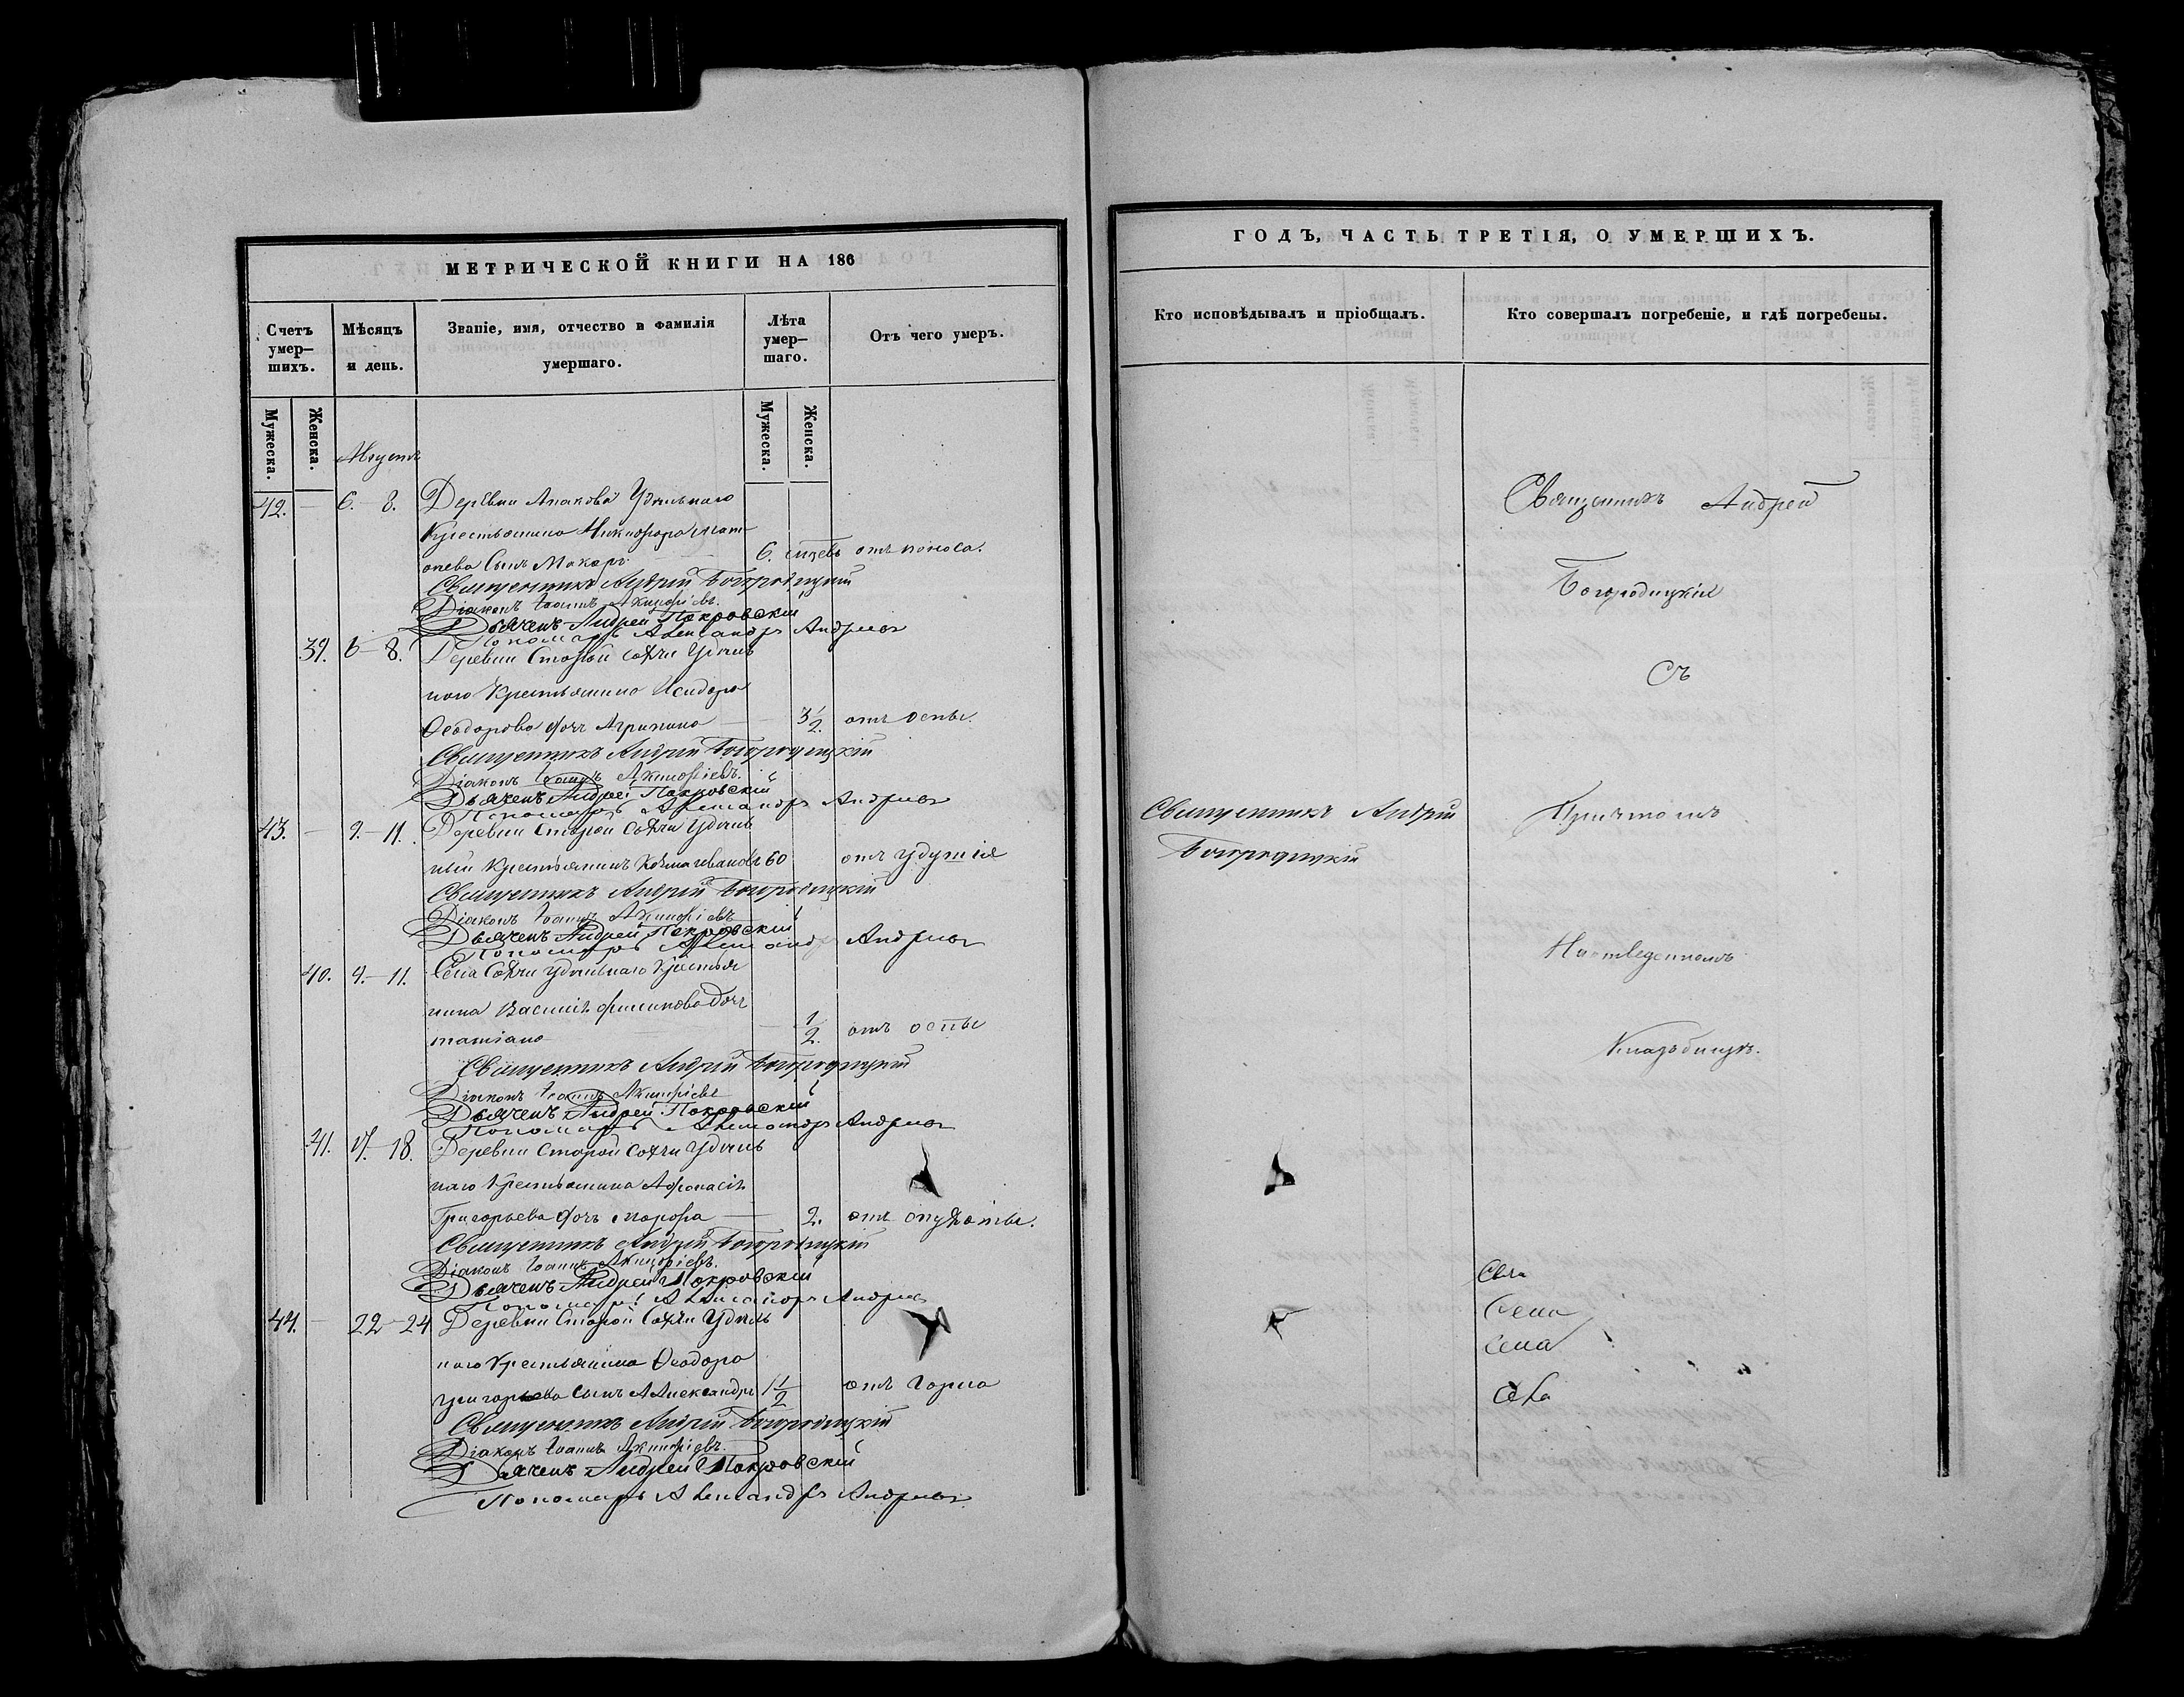 МЕТРИЧЕСКОЙ КНИГИ НА 186
Счетъ умер–шихъ.
Мѣсяцъ и день.
Званіе, имя, отчество и фамилія умершаго.
Лѣта умер–шаго.
Отъ чего умеръ.
Мужеска.
Женска.
Мужеска.
Женска.
Августъ
42. — 6. – 8. Деревни Апакова Удѣльнаго
Крестьянина Никифора
сынъ Макаръ 6. отъ поноса.
Священникъ Андрей Богородицкій
Діаконъ Іоаннъ Акинфіевъ.
Дьячекъ Андрей Покровскій
Пономарь Александръ Андреевъ
39. 6 – 8. Деревни Старой Удѣль
наго Крестьянина Исидора
Ѳеодорова дочь Агрипина — 3 1/2. отъ оспы.
Священникъ Андрей Богородицкій
Діаконъ Іоаннъ Акинфіевъ.
Дьячекъ Андрей Покровскій
Пономарь Александръ Андреевъ
43. — 9. – 11. Деревни Старой Удѣль
ный Крестьянинъ Козма Ивановъ 60 отъ удушія
Священникъ Андрей Богородицкій
Діаконъ Іоаннъ Акинфіевъ
Дьячекъ Андрей Покровскій
Пономарь Александръ Андреевъ
40. 9. – 11. Села Удѣльнаго Крестья
нина Василія Филипова дочь
татіана — 1/2. отъ оспы
Священникъ Андрей Богородицкій
Діаконъ Іоаннъ Акинфіевъ
Дьячекъ Андрей Покровскій
Пономарь Александръ Андреевъ
41. 17. – 18. Деревни Старой Удѣль
наго Крестьянина Афонасія
Григорьева дочь — 2. отъ
Священникъ Андрей Богородицкій
Діаконъ Іоаннъ Акинфіевъ.
Дьячекъ Андрей Покровскій
Пономарь Александръ Андреевъ
44. — 22 – 24 Деревни Старой Удѣль
наго Крестьянина Ѳеодора
григорьева сынъ Александръ 1 1/2 отъ
Священникъ Андрей Богородицкій
Діаконъ Іоаннъ Акинфіевъ.
Дьячекъ Андрей Покровскій
Пономарь Александръ Андреевъ
ГОДЪ, ЧАСТЬ ТРЕТІЯ, О УМЕРШИХЪ.
Кто исповѣдывалъ и пріобщалъ.
Кто совершалъ погребеніе, и гдѣ погребены.
Священникъ Андрей
Богородицкій
Священникъ Андрей
Богородицкій
Съ
Причтомъ
На отведенномъ
Кладбищѣ.